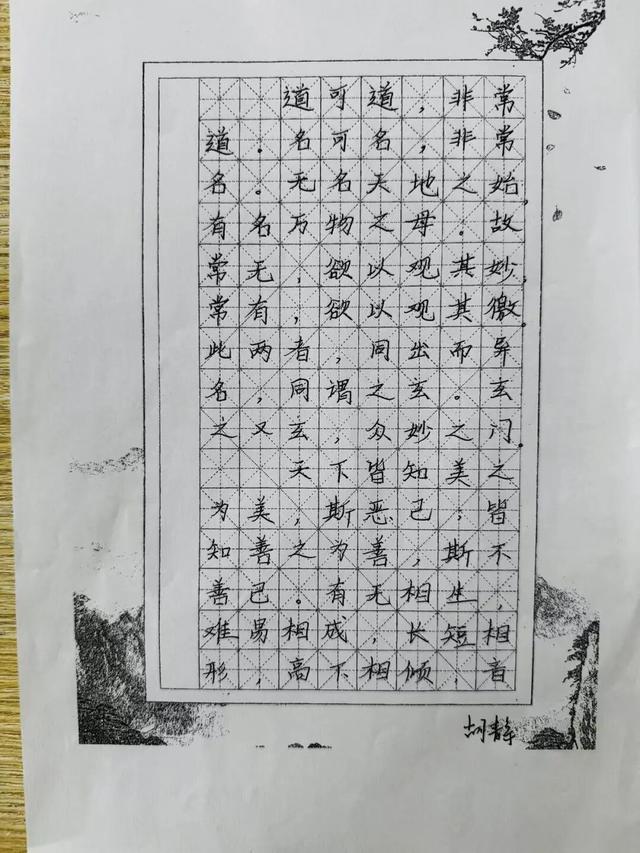 道可道，非常
道。名可名，非常
名。无名天地之始，
有名万物之母。故
常无，欲以观其妙，
常有，欲以观其徼，
此两者，同出而异
名，同谓之玄。玄
之又玄，众妙之门。
天下皆知美之
为美，斯恶已；皆
知善之为善，斯不
善已。有无相生，
难易相成，长短相
形，高下相倾，音
胡静